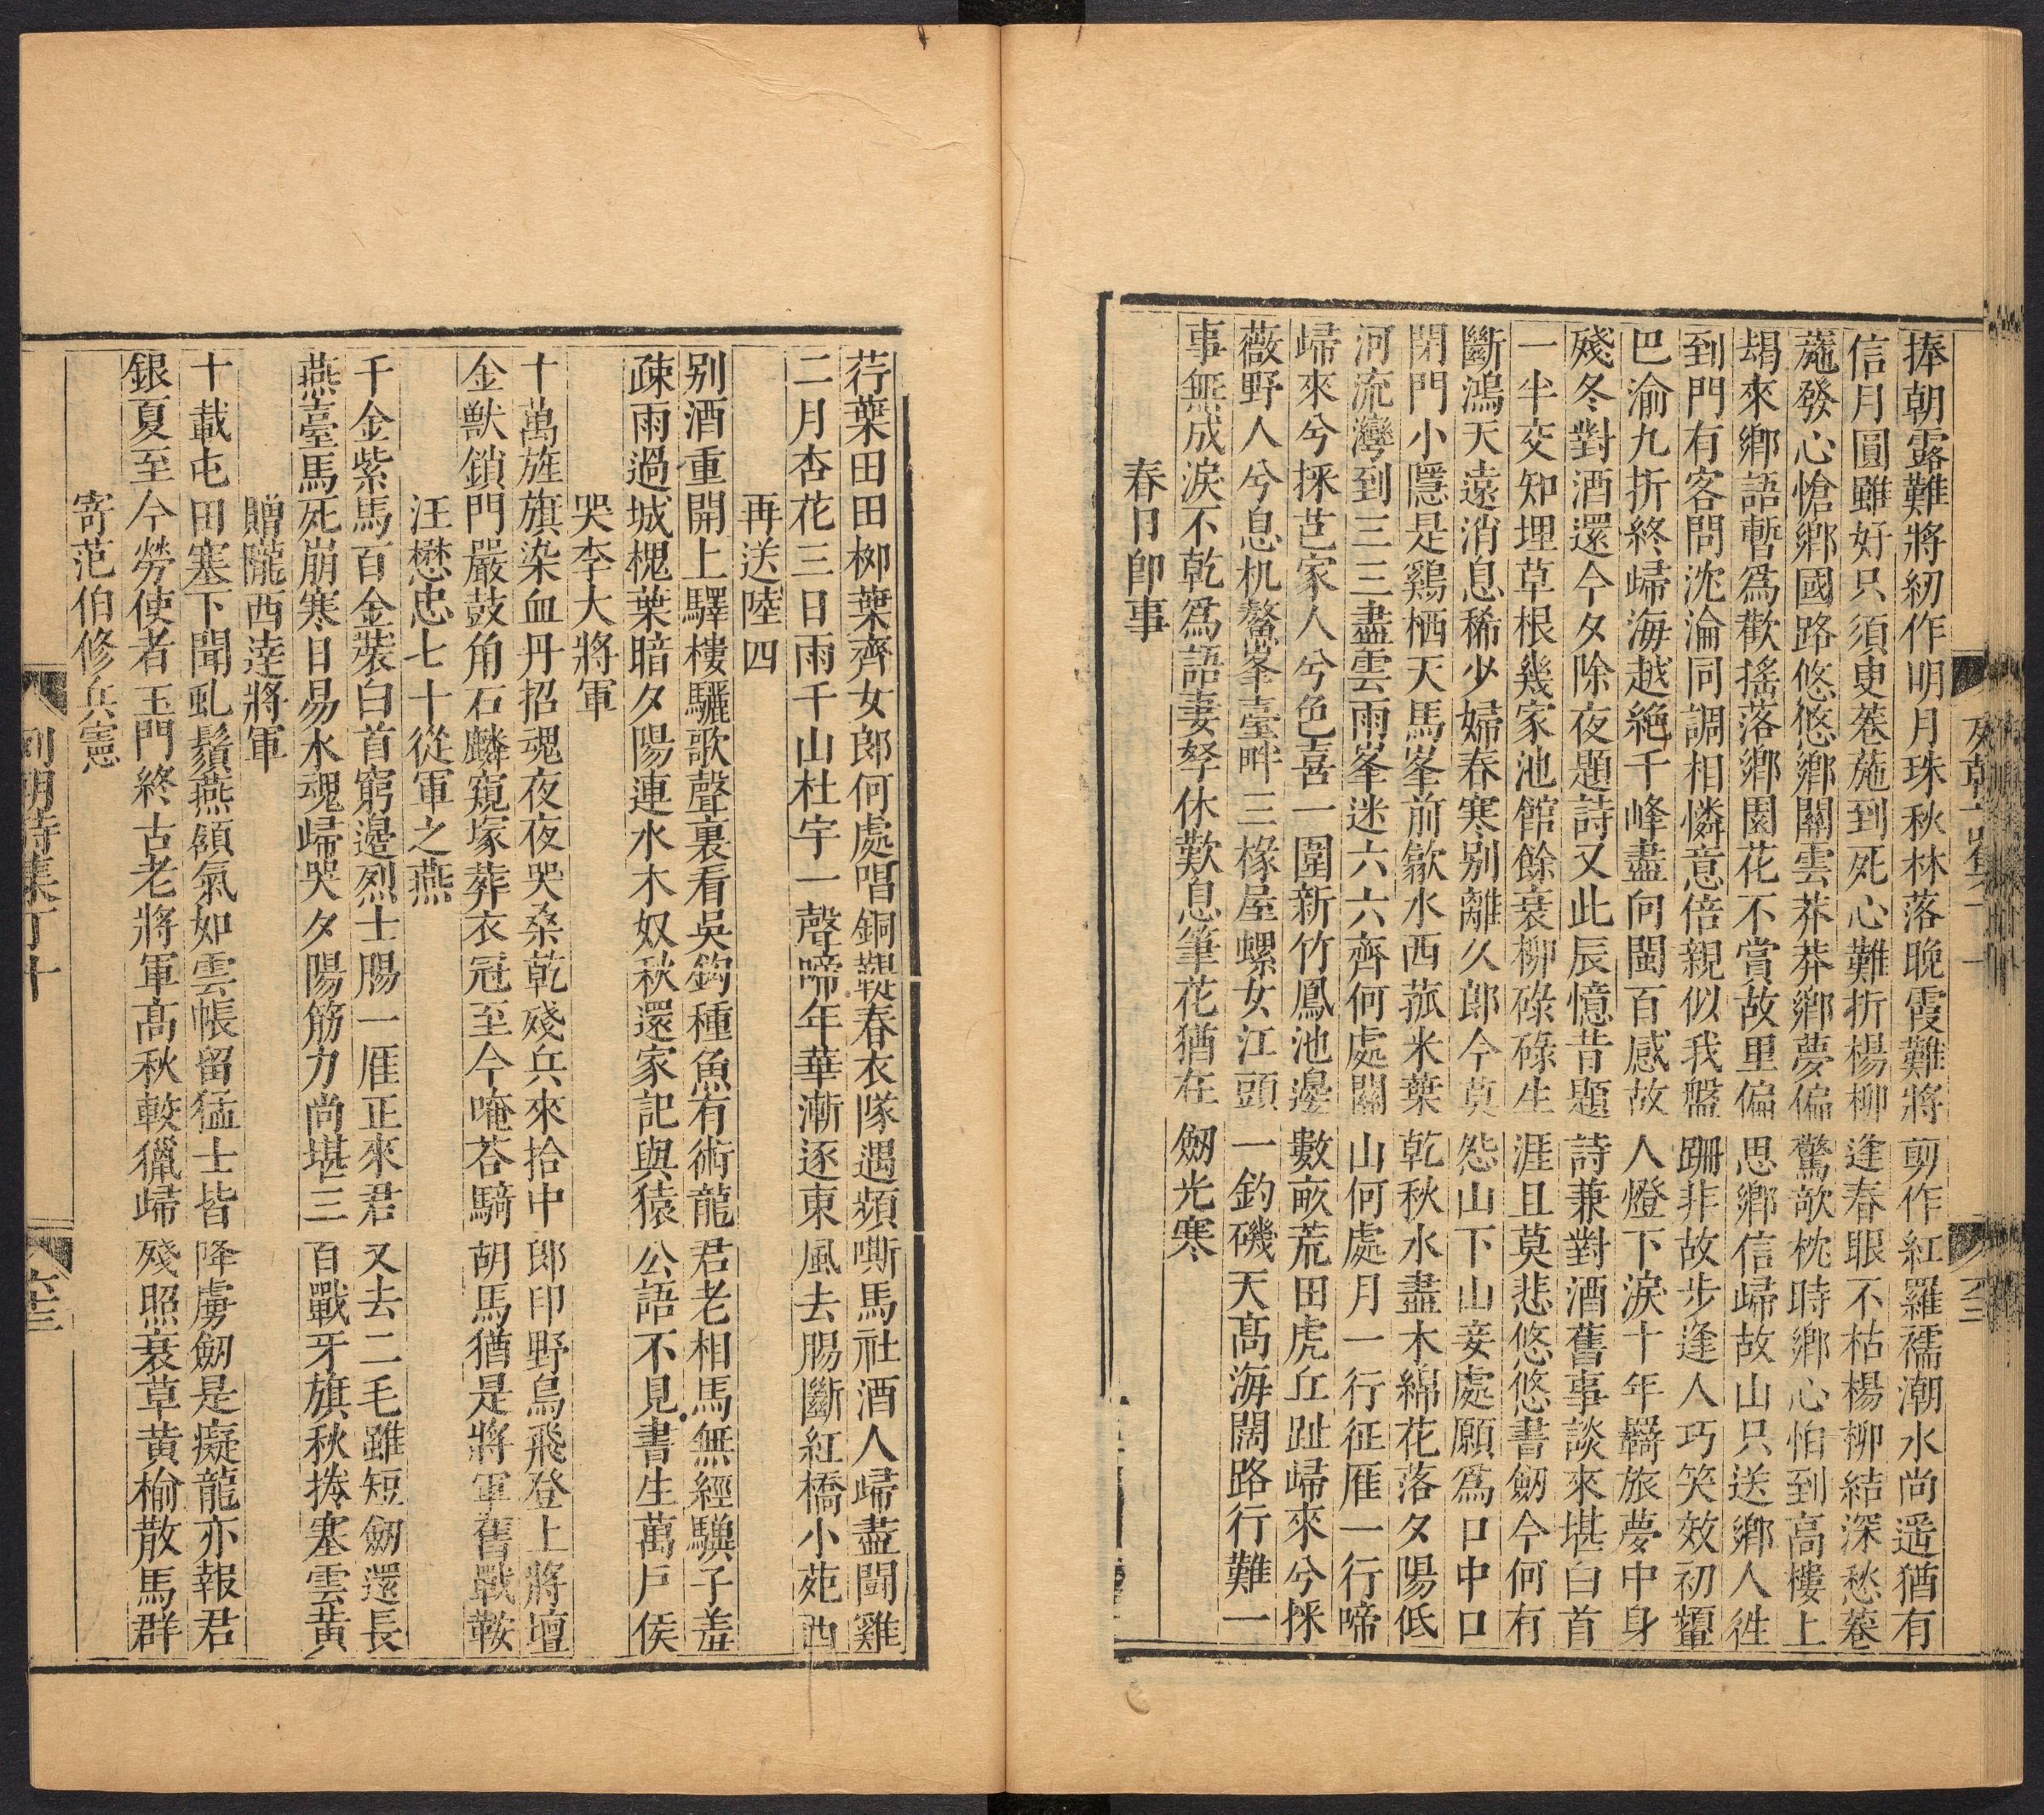 捧朝露難將紉作明月珠秋林落晚霞難將剪作紅羅襦潮水尚遥猶有
信月圓雖好只須臾菤葹到死心難折楊柳逢春眼不枯楊柳結深愁菤
葹發心愴鄉國路悠悠鄉關雲莽莽鄉夢偏驚欹枕時鄉心怕到高樓上
朅來鄉語暫爲歡搖落鄉園花不賞故里偏思鄉信歸故山只送鄉人徃
到門有客問沈淪同調相憐意倍親似我盤跚非故步逢人巧笑效初顰
巴渝九折終歸海越絶千峰盡向閩百感故人燈下淚十年羇旅夢中身
殘冬對酒還今夕除夜題詩又此辰憶昔題詩兼對酒舊事談來堪白首
一半交知埋草根幾家池館餘衰柳碌碌生涯且莫悲悠悠書劒今何有
斷鴻天遠消息稀少婦春寒别離久郎今莫怨山下山妾處願爲口中口
閉門小隱是鷄栖天馬峯前歙水西菰米葉乾秋水盡木綿花落夕陽低
河流灣到三三盡雲雨峯迷六六齊何處關山何處月一行征雁一行啼
歸來兮採芑家人兮色喜一圍新竹鳳池邊數畝荒田虎丘趾歸來兮採
薇野人兮息机鰲峯臺畔三椽屋螺女江頭一釣磯天高海闊路行難一
事無成淚不乾爲語妻孥休歎息筆花猶在劒光寒
春日即事
荇葉田田柳葉齊女郎何處唱銅鞮春衣隊遇頻嘶馬社酒人歸盡鬭雞
二月杏花三日雨千山杜宇一聲啼年華漸逐東風去腸斷紅橋小苑西
再送陸四
别酒重開上驛樓驪歌聲裏看吳鉤種魚有術龍君老相馬無經驥子羞
疎雨過城槐葉暗夕陽連水木奴秋還家記與猿公語不見書生萬戸侯
哭李大將軍
十萬旌旗染血丹招魂夜夜哭桑乾殘兵來拾中郎印野烏飛登上將壇
金獸鎖門嚴鼓角石麟窺塚葬衣冠至今唵荅騎胡馬猶是將軍舊戰鞍
汪懋忠七十從軍之燕
千金紫馬百金裝白首窮邊烈士腸一雁正來君又去二毛雖短劒還長
燕臺馬死崩寒日易水魂歸哭夕陽筋力尚堪三百戰牙旗秋捲塞雲黄
贈隴西逹將軍
十載屯田塞下聞虬鬚燕頷氣如雲帳留猛士皆降虜劒是癡龍亦報君
銀夏至今勞使者玉門終古老將軍高秋較獵歸殘照衰草黄榆散馬群
寄范伯修兵憲
列朝詩集丁十
六三